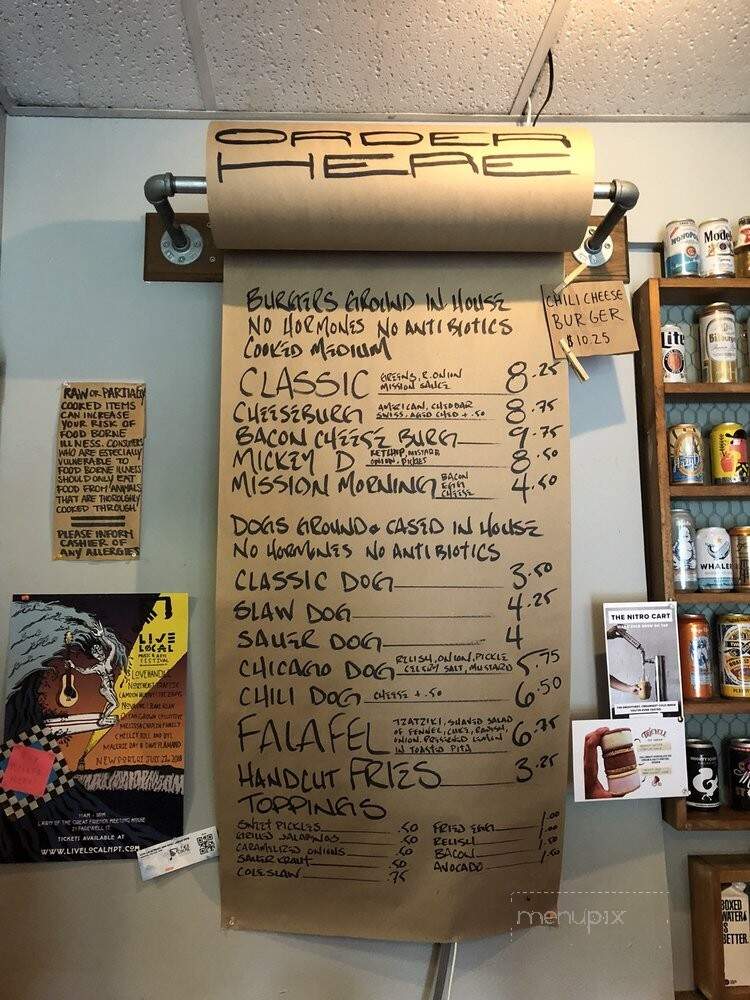 ORDER
HERE
BURGERS GROUND IN HOUSE
NO HORMONES NO ANTIBIOTICS
COOKED MEDIUM
CLASSIC GREENS, R.ONION 8.25
MISSION SAUCE
CHEESEBURG AMERICAN, CHEDDAR 8.75
SWISS, AGED CHED + .50
BACON CHEESE BURG 9.75
MICKEY D KETCHUP, MUSTARD 8.50
ONION, PICKLES
MISSION MORNING BACON 4.50
EGG
CHEESE
DOGS GROUND & CASED IN HOUSE
NO HORMONES NO ANTIBIOTICS
CLASSIC DOG 3.50
SLAW DOG 4.25
SAUER DOG 4
CHICAGO DOG RELISH, ONION, PICKLE 5.75
CELERY SALT, MUSTARD
CHILI DOG CHEESE + .50 6.50
FALAFEL TZATZIKI, SHAVED SALAD 6.75
OF FENNEL, CUKE, RADISH,
ONION. PRESERVED LEMON
IN TOASTED PITA
HANDCUT FRIES 3.25
TOPPINGS
SWEET PICKLES .50
GRILLED JALAPENOS .50
CARAMELIZED ONIONS .50
SAUER KRAUT .50
COLESLAW .75
FRIED EGG 1.00
RELISH .50
BACON 1.50
AVOCADO
CHILI CHEESE
BURGER
$10.25
RAW OR PARTIALLY
COOKED ITEMS
CAN INCREASE
YOUR RISK OF
FOOD BORNE
ILLNESS. CONSUMERS
WHO ARE ESPECIALLY
VULNERABLE TO
FOOD BORNE ILLNESS
SHOULD ONLY EAT
FOOD FROM ANIMALS
THAT ARE THOROUGHLY
COOKED THROUGH
PLEASE INFORM
CASHIER OF
ANY ALLERGIES
LIVE
LOCAL
MUSIC & ARTS
FESTIVAL
LOVEHANDLE
NEWPORT RI JULY 21st 2018
11AM - 11PM
LAWN OF THE GREAT FRIENDS MEETING HOUSE
21 FAREWELL ST
TICKETS AVAILABLE AT
WWW.LIVELOCALNPT.COM
THE NITRO CART
Lite
WHALER
BOXED
WATER
IS
BETTER.
menupix